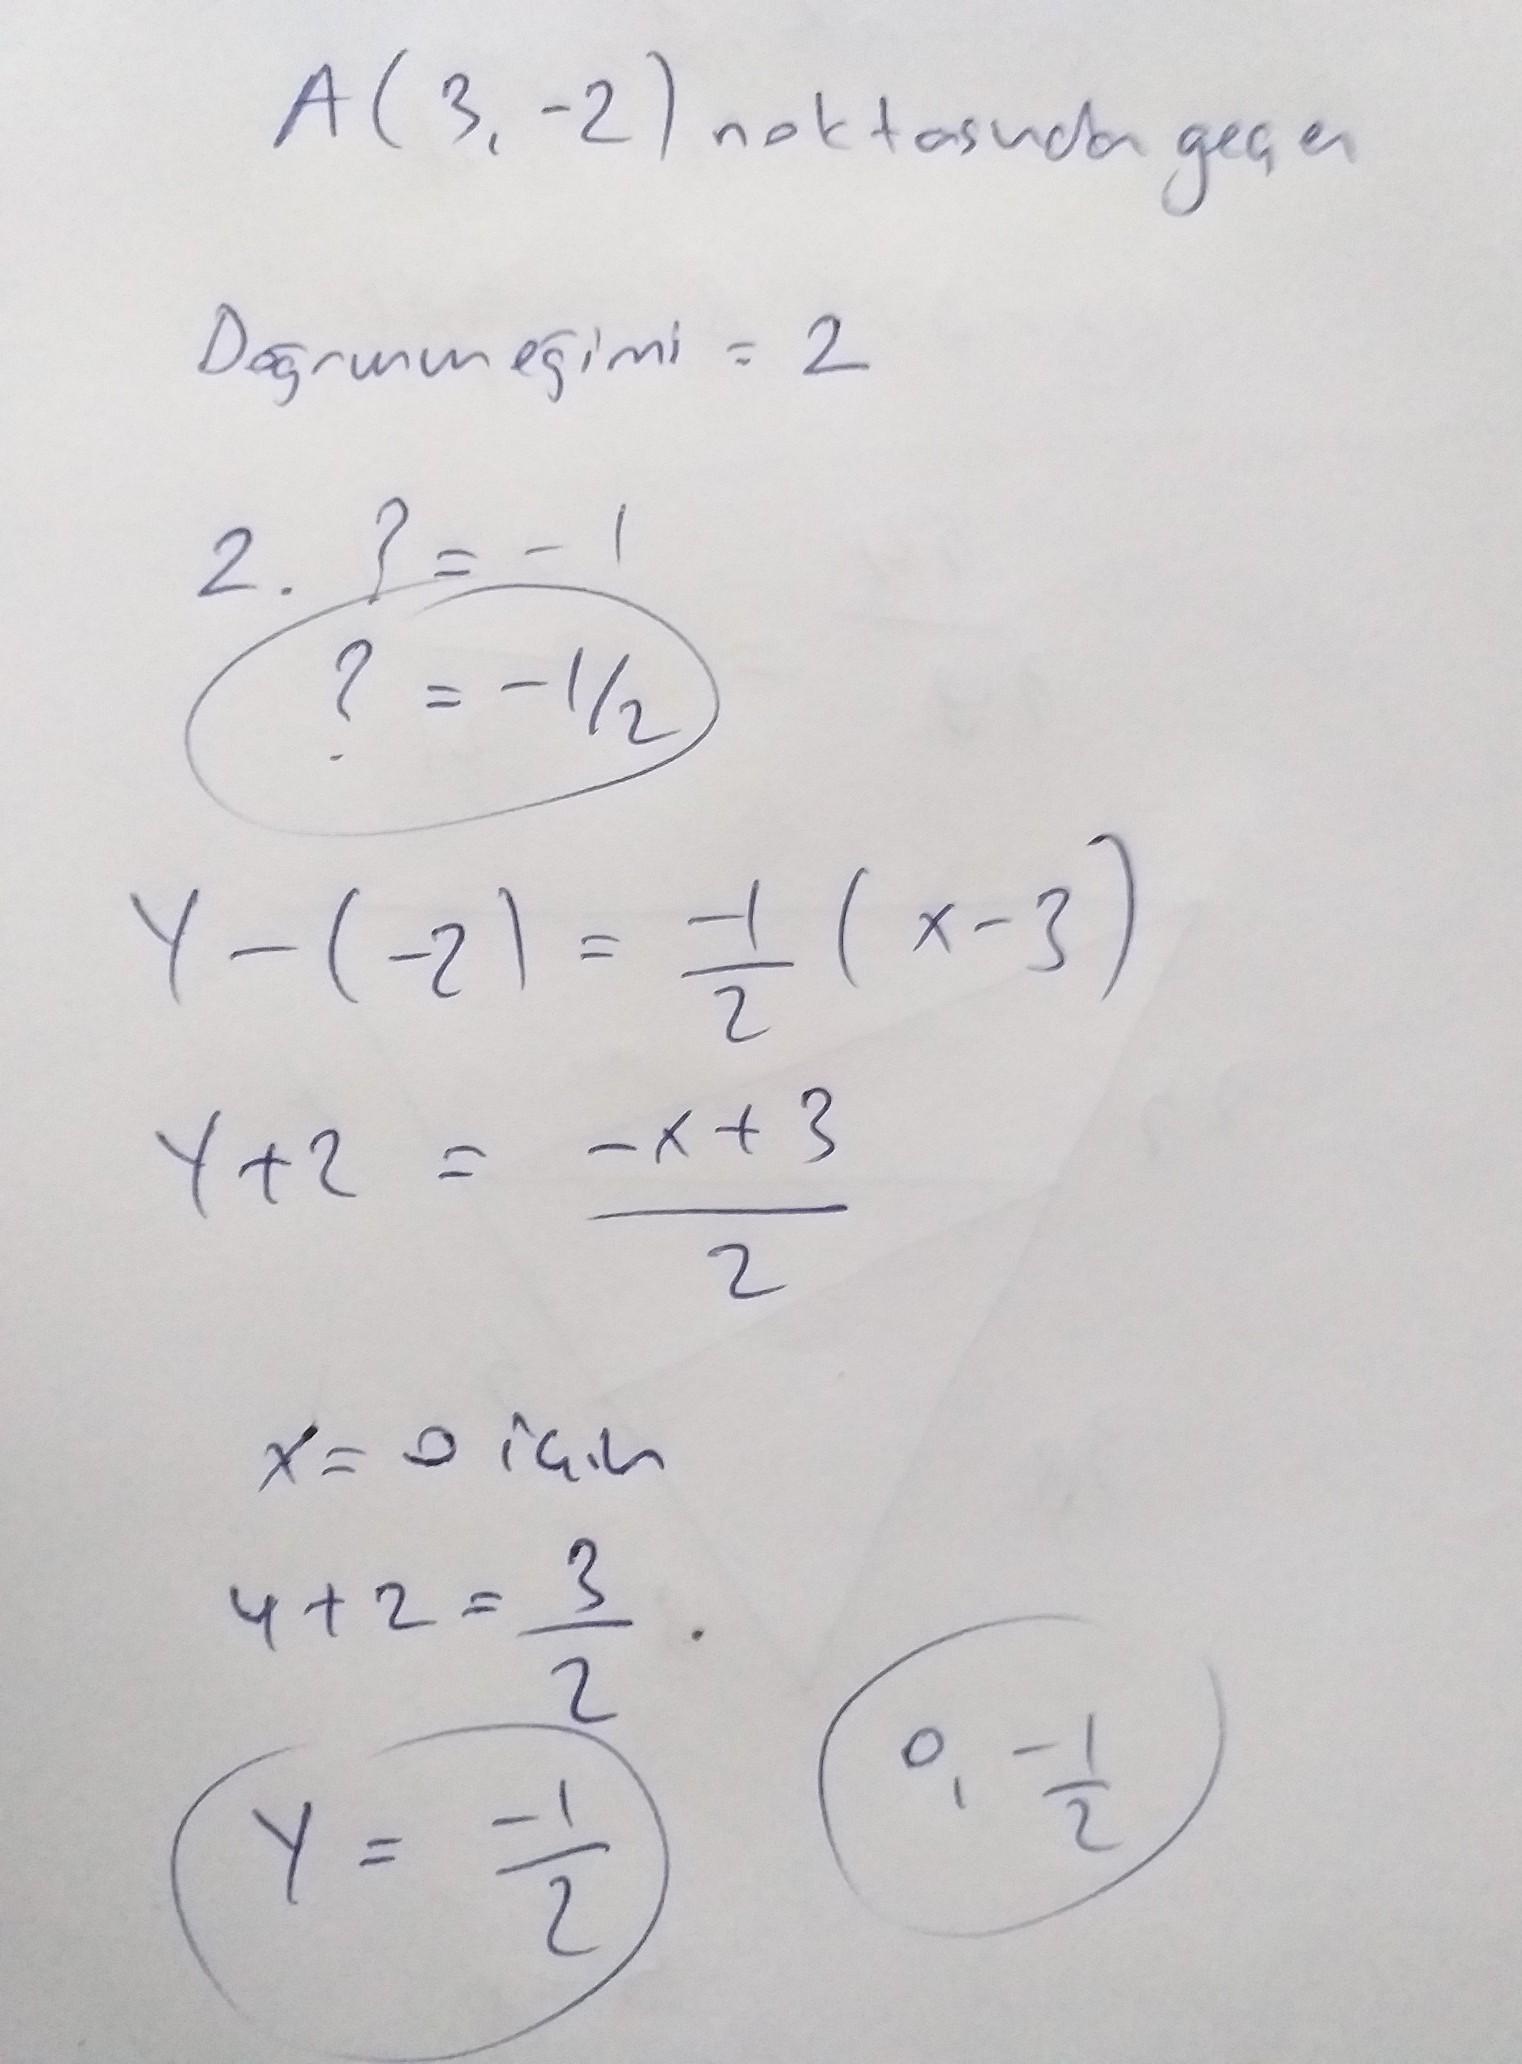 A(3,-2) noktasından geçen
Doğrunun eğimi = 2
2. ? = -1
? = -1/2
Y-(-2) = -1/2 (x-3)
Y+2 = -x+3/2
x=0 için
y+2 = 3/2.
Y = -1/2
0, -1/2